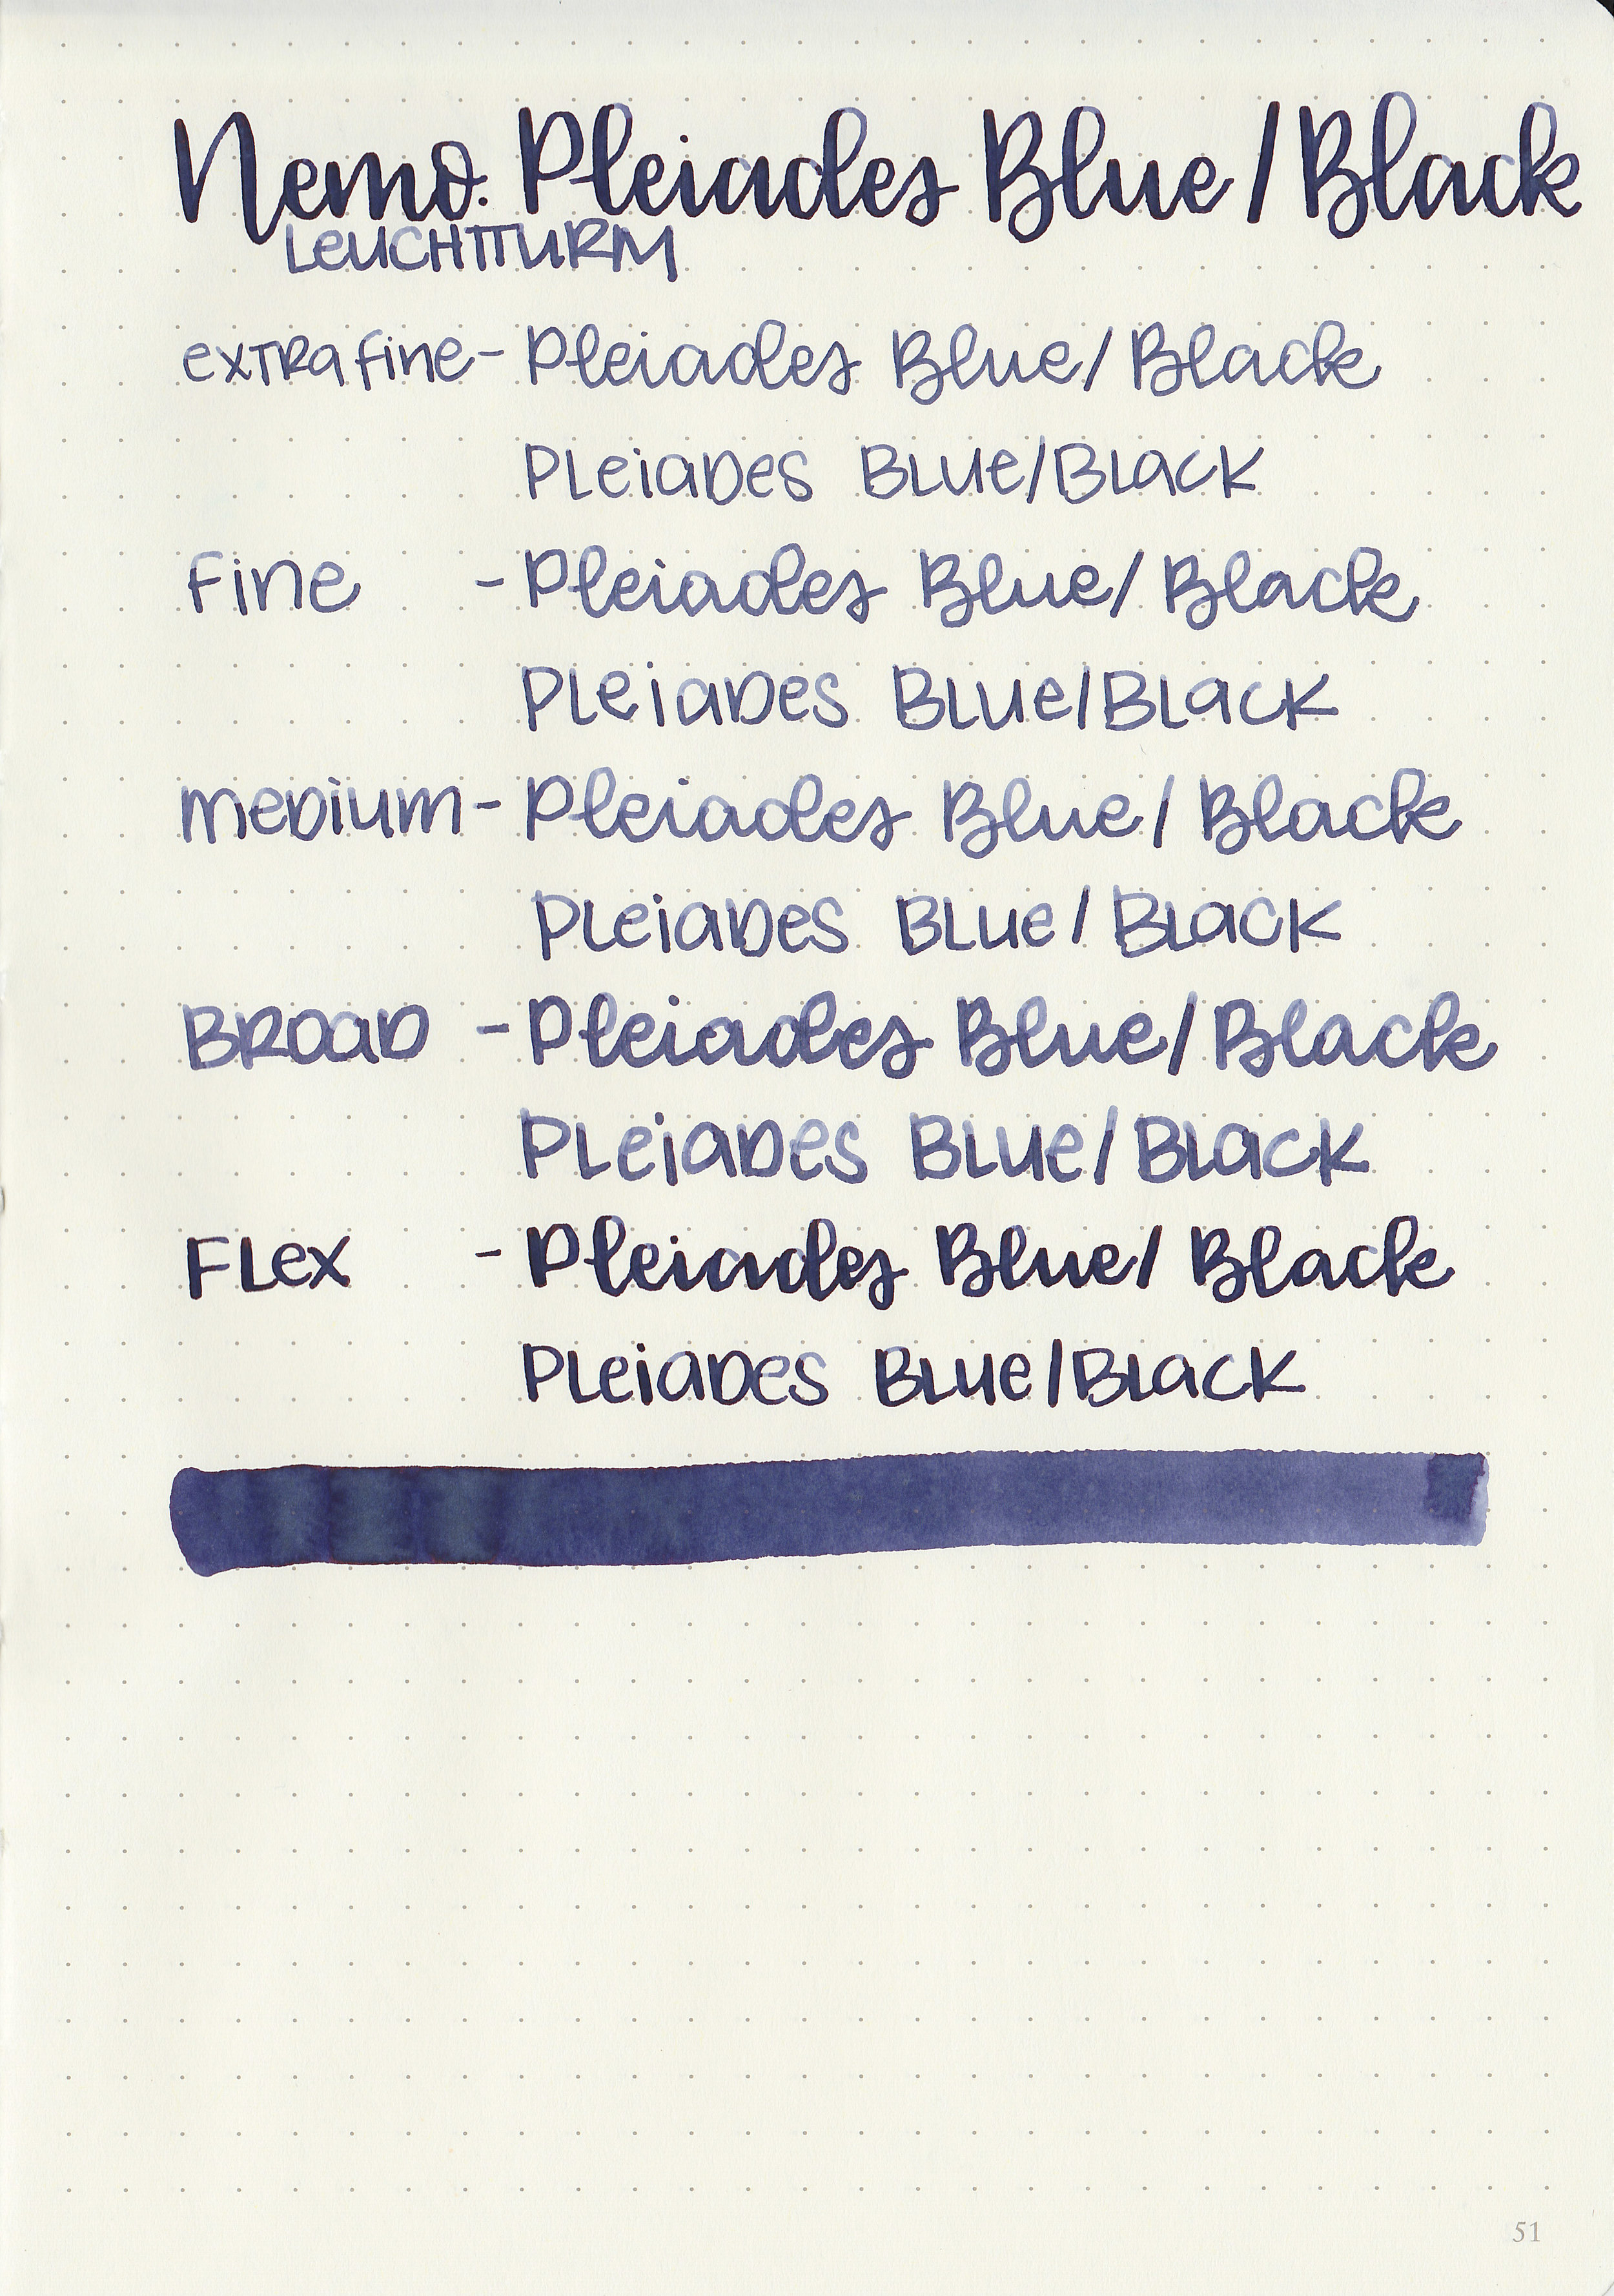 Nemo. Pleiades Blue/Black
LeUCHTTURM
exTRa fine - Pleiades Blue/Black
PLeiaDes BLUe/BLacK
Fine - Pleiades Blue/Black
PLeiaDes BLUe/BLacK
meDium - Pleiades Blue/Black
PLeiaDes BLUe/BLacK
BROaD - Pleiades Blue/Black
PLeiaDes BLUe/BLacK
FLex - Pleiades Blue/Black
PLeiaDes BLUe/BLacK
51